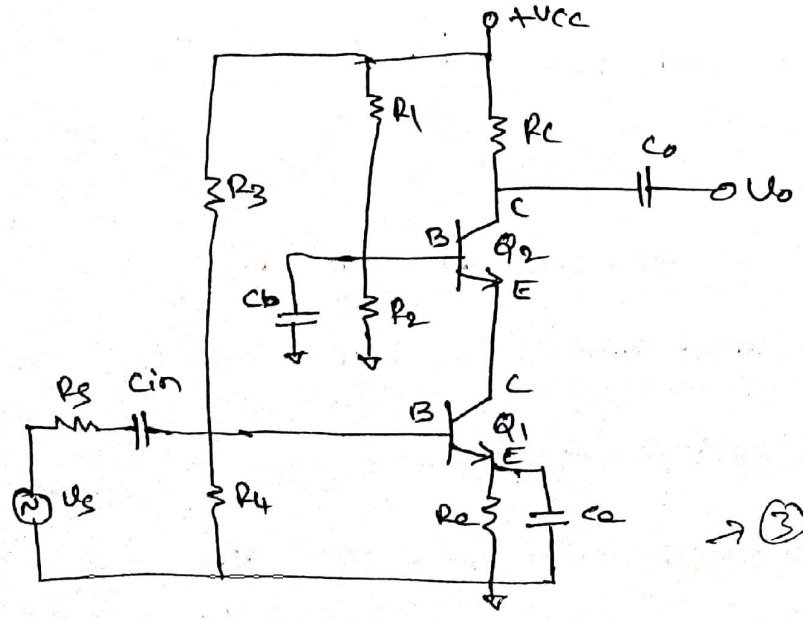 +VCC
R1
RC
Co
Vo
R3
C
B
Q2
E
Cb
R2
Rs
Cin
C
B
Q1
E
Vs
R4
Re
Ce
→ 3